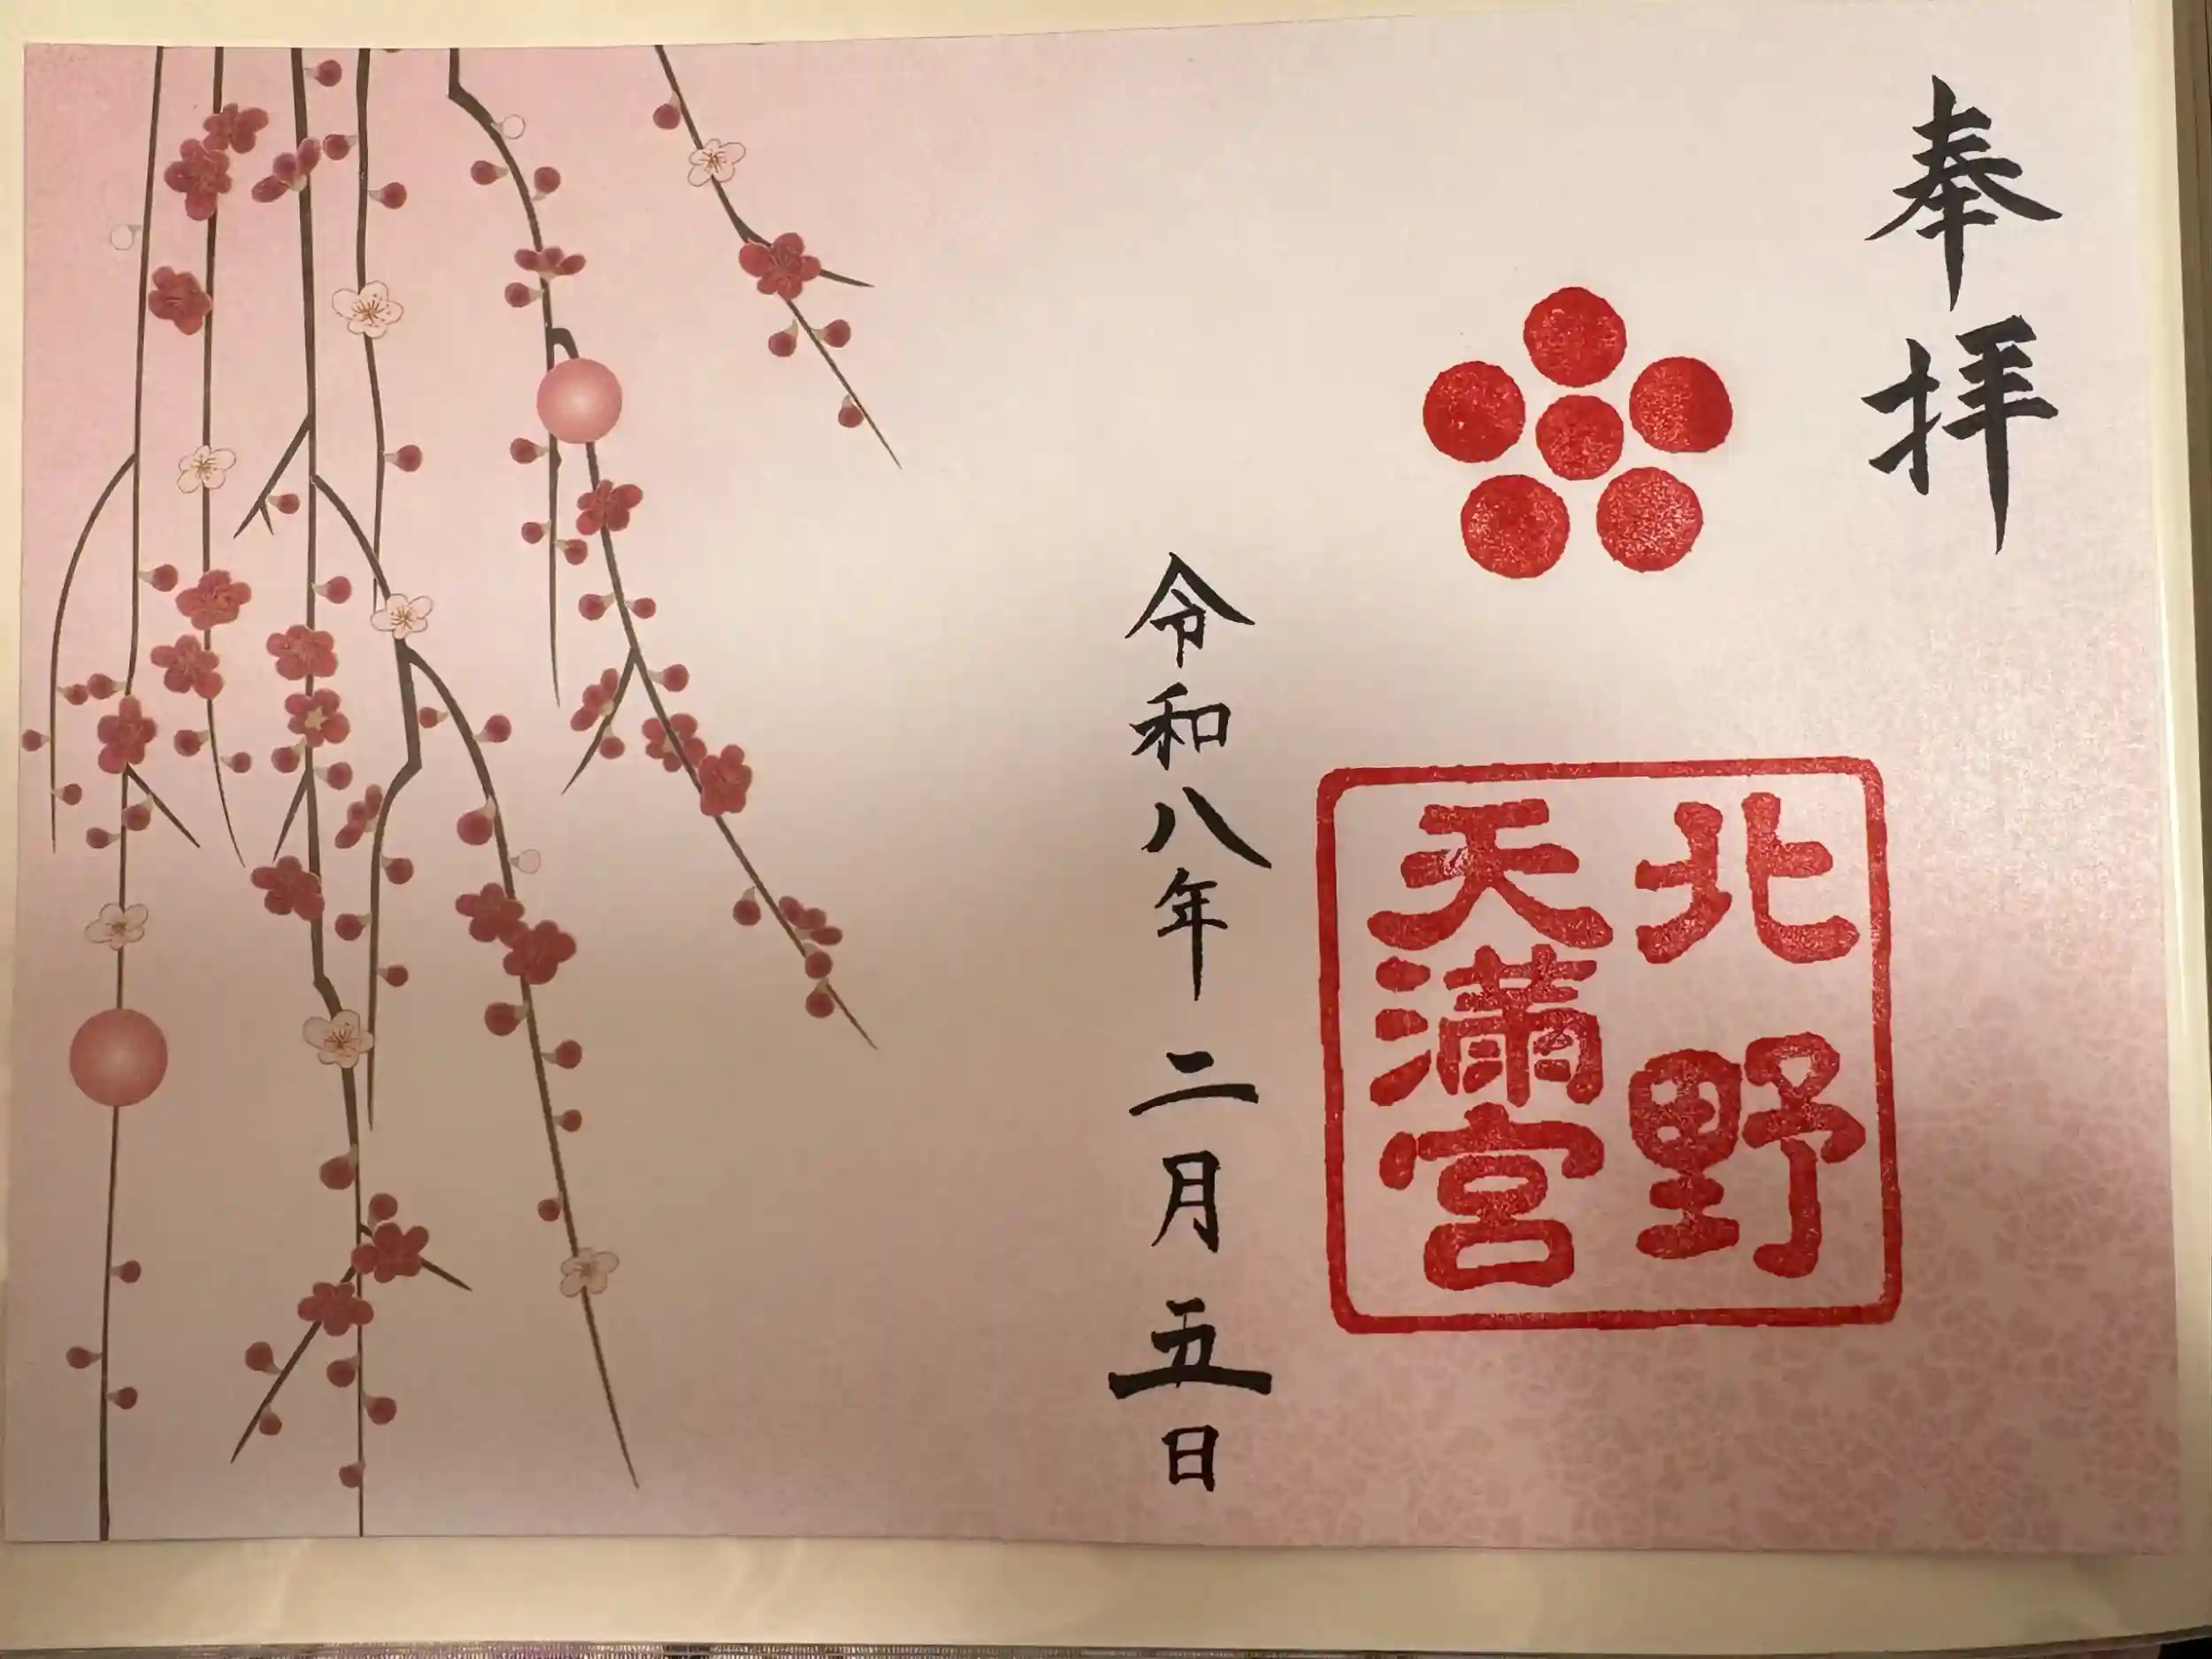 奉拝
北野
天満宮
令和八年二月五日